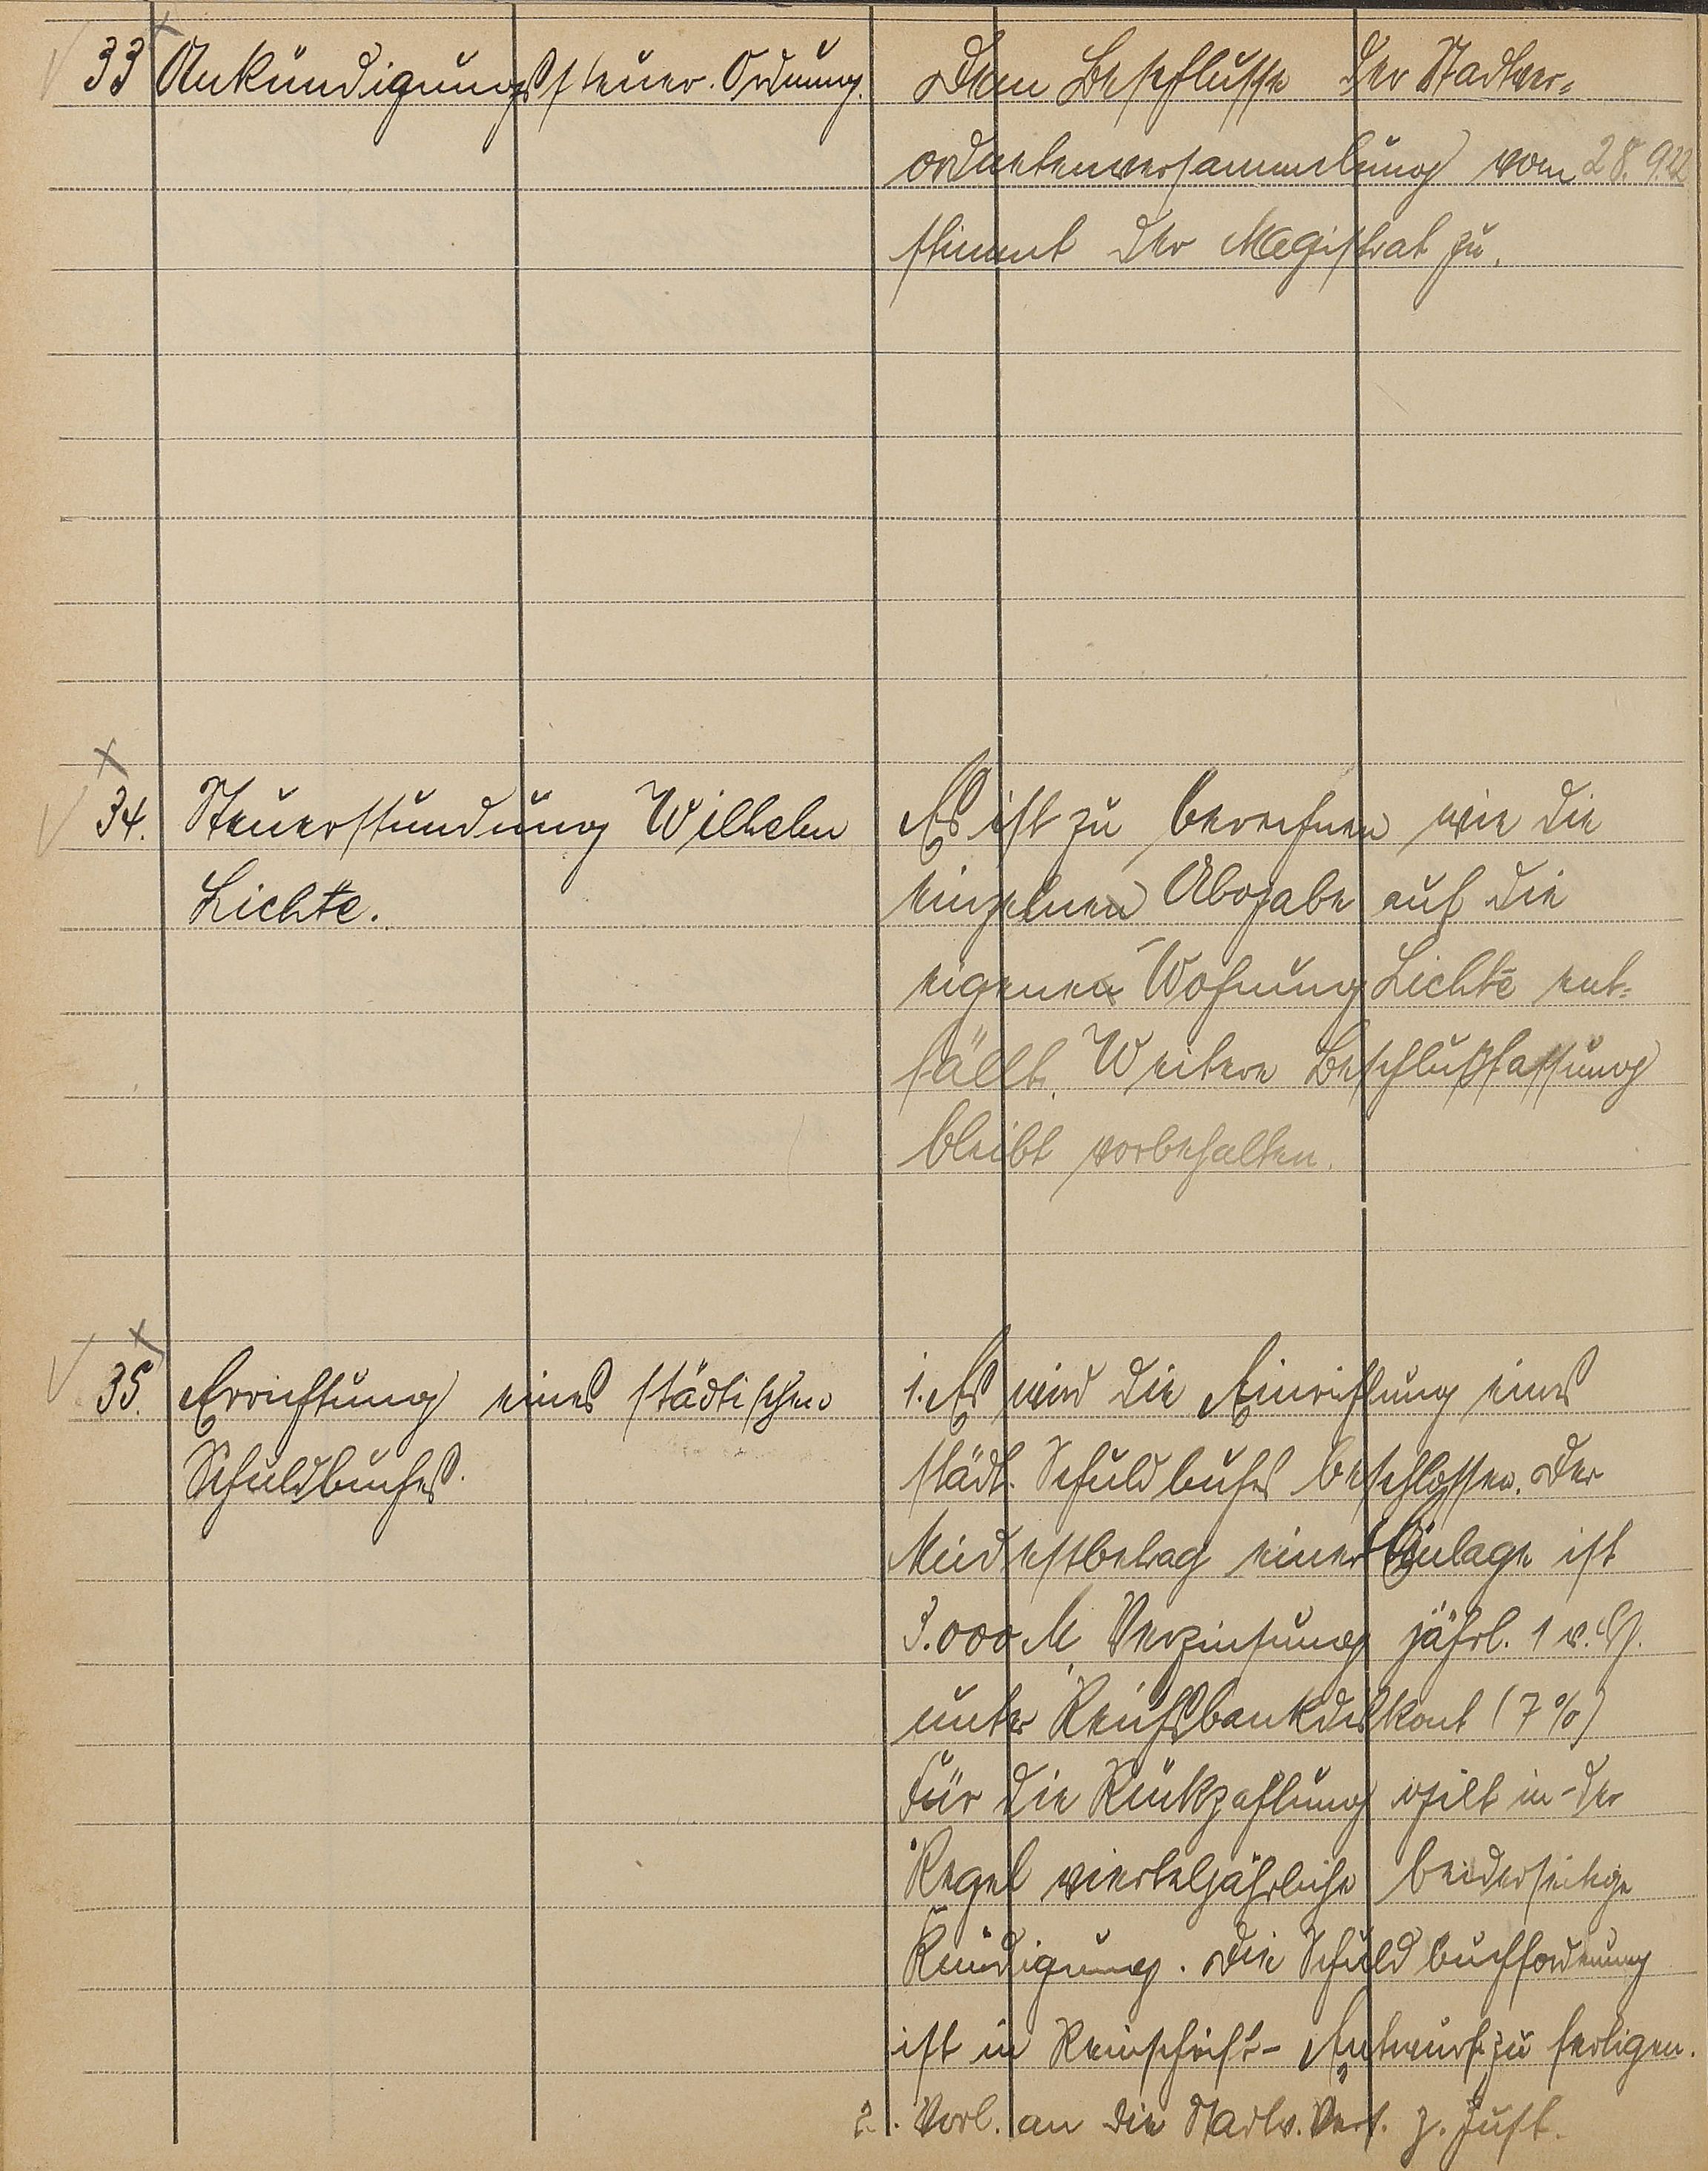 33 Ankündigungssteuer-Ordnung.
Dem Beschlusse der Stadtver=
ordnetenversammlung vom 28.9.22
stimmt der Magistrat zu.
34. Steuerstundung Wilhelm
Lichte.
Es ist zu berechnen wie die
einzelnen Abgabe auf die
eigenen Wohnung Lichte ent=
fällt. Weitere Beschlußfassung
bleibt vorbehalten.
35. Errichtung eines städtischen
Schuldbuches.
1. Es wird die Einrichtung eines
städt. Schuldbuches beschlossen. Der
Mindestbetrag einer Einlage ist
3.000 M. Verzinsung jährl. 1 v.H.
unter Reichsbankdiskont (7%)
Für die Rückzahlung gilt in der
Regel vierteljährliche beiderseitige
Kündigung. Die Schuldbuchordnung
ist in Reinschrift-Entwurf zu fertigen.
2. Vorl. an die Stadtv. Vers. z. Zust.